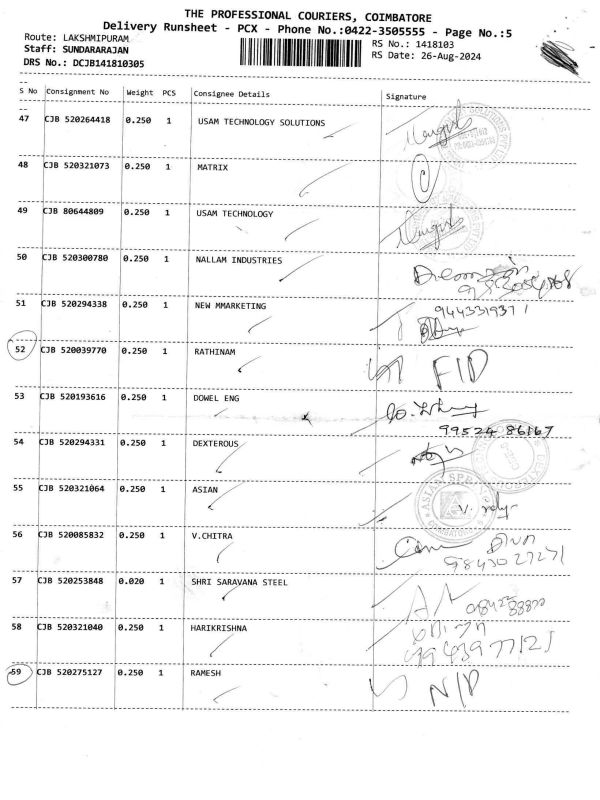 THE PROFESSIONAL COURIERS, COIMBATORE
Delivery Runsheet - PCX - Phone No.:0422-3505555 - Page No.:5
Route: LAKSHMIPURAM
RS No.: 1418103
Staff: SUNDARARAJAN
RS Date: 26-Aug-2024
DRS No.: DCJB141810305
S No Consignment No Weight PCS Consignee Details Signature
47 CJB 520264418 0.250 1 USAM TECHNOLOGY SOLUTIONS
48 CJB 520321073 0.250 1 MATRIX
49 CJB 80644809 0.250 1 USAM TECHNOLOGY
50 CJB 520300780 0.250 1 NALLAM INDUSTRIES
51 CJB 520294338 0.250 1 NEW MMARKETING 9443319371
52 CJB 520039770 0.250 1 RATHINAM F/D
53 CJB 520193616 0.250 1 DOWEL ENG
99524 86167
54 CJB 520294331 0.250 1 DEXTEROUS
55 CJB 520321064 0.250 1 ASIAN
56 CJB 520085832 0.250 1 V.CHITRA
9843027271
57 CJB 520253848 0.020 1 SHRI SARAVANA STEEL
58 CJB 520321040 0.250 1 HARIKRISHNA
59 CJB 520275127 0.250 1 RAMESH N/D